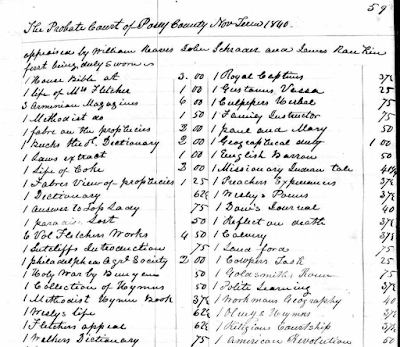 59
The Probate Court of Posey County Nov Term 1840.
appraised by William Reaves John Schrader and James Rankin
first being duly sworn
1 House Bible at 3.00 1 Royal Captives 37½
1 life of Mrs Fletcher 1 00 1 Gustavus Vassa 25
3 Arminian Magazines 6 00 1 Culpepers Herbal 75
1 Methodist do 1 50 1 Family Instructor 75
1 fabre on the prophecies 2 00 1 paul and Mary 50
1 Bucks the. Dictionary 2 00 1 Geographical 1 00
1 Laws extract 1 00 1 English 50
1 Life of Coke 2 00 1 Missionary tale
1 Fabres View of prophecies 1 25 1 Preachers Experiences 37½
1 Dictionary 62½ 1 Wesley's 37½
1 Answer to Top Lady 75 1 Journal 40
1 paradise Lost 50 1 Reflect on death 37½
6 Vol Fletchers Works 4 50 1 37½
1 Sutcliffs Introduction 75 1 75
1 philadelphia Agrl Society 2 00 1 Cowpers Task 25
1 Holy War by Bunyans 50 1 Goldsmiths Rome 75
1 Collection of Hymns 50 1 Polite Learning 37½
1 Methodist Hymn Book 37½ 1 Workmans Geography 40
1 Wesly's life 62½ 1 Hymns 37½
1 Fletchers appeal 62½ 1 Religious Courtship 37½
1 Walkers Dictionary 75 1 American Revolution 50